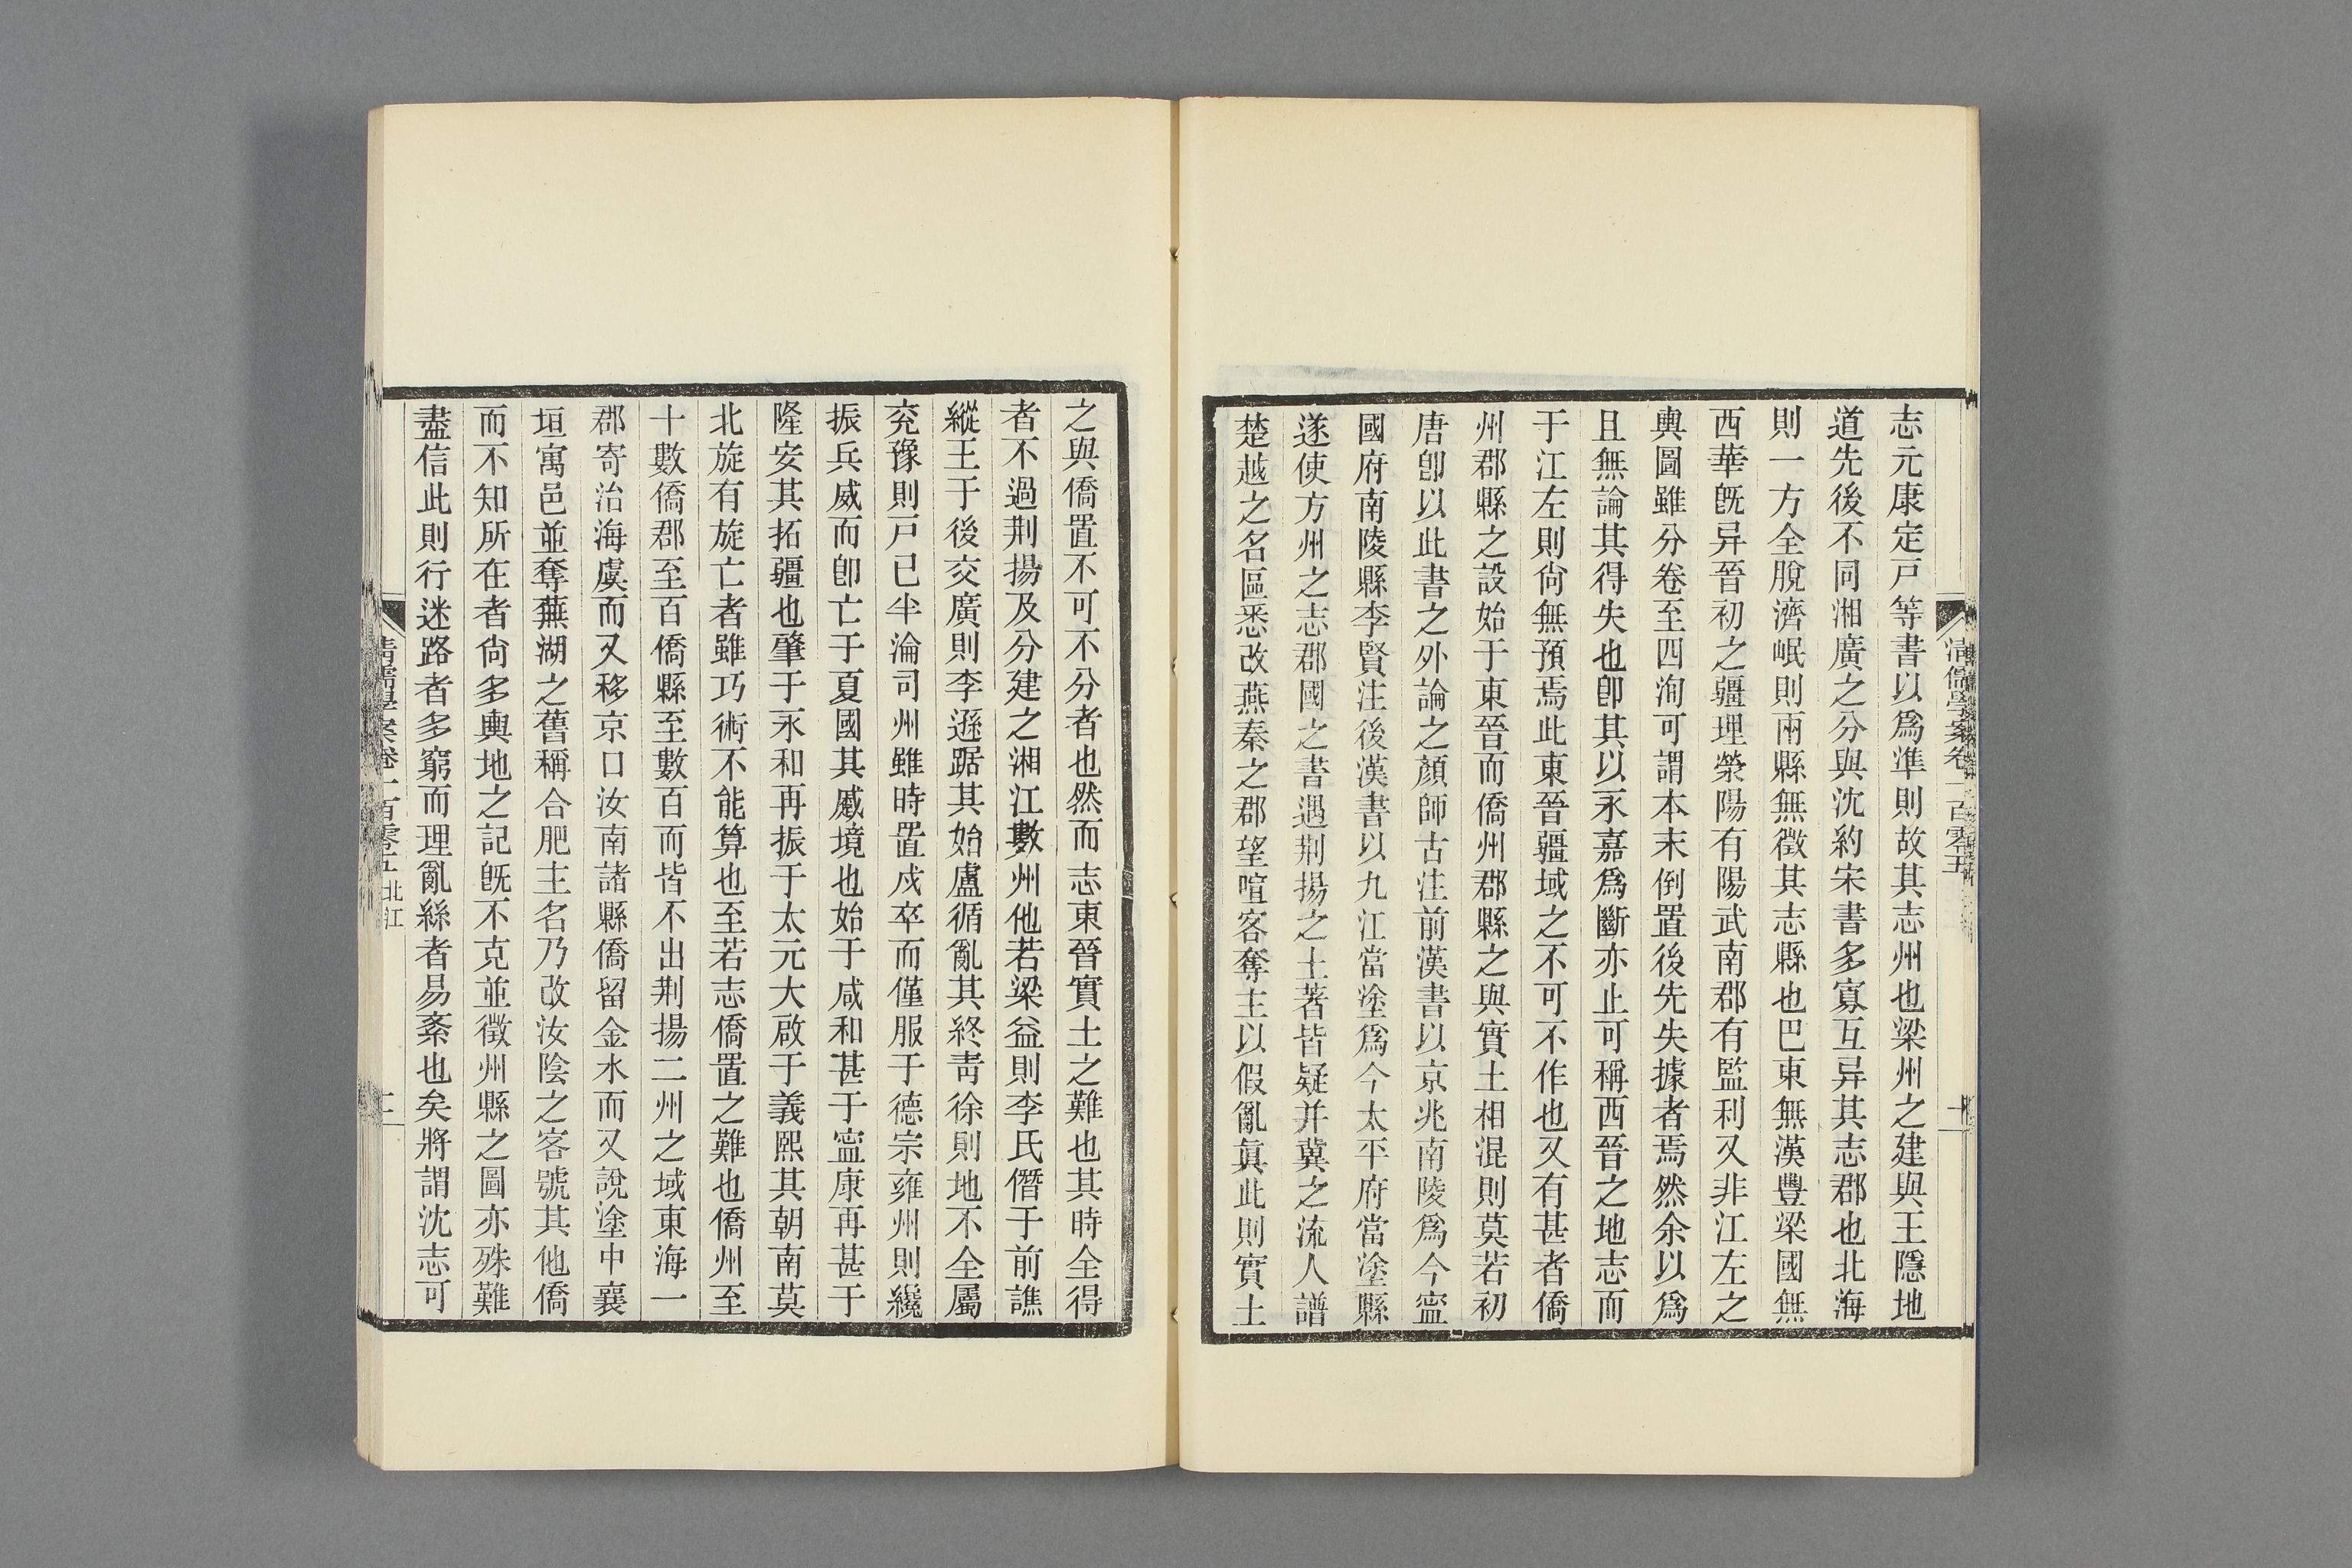 志元康定戸等書以爲準則故其志州也梁州之建與王隱地
道先後不同湘廣之分與沈約宋書多寡互异其志郡也北海
則一方全脫濟岷則兩縣無徵其志縣也巴東無漢豐梁國無
西華旣异晉初之疆理滎陽有陽武南郡有監利又非江左之
輿圖雖分卷至四洵可謂本末倒置後先失據者焉然余以爲
且無論其得失也卽其以永嘉爲斷亦止可稱西晉之地志而
于江左則尙無預焉此東晉疆域之不可不作也又有甚者僑
州郡縣之設始于東晉而僑州郡縣之與實土相混則莫若初
唐卽以此書之外論之顏師古注前漢書以京兆南陵爲今寍
國府南陵縣李賢注後漢書以九江當塗爲今太平府當塗縣
遂使方州之志郡國之書遇荆揚之土著皆疑并冀之流人譜
楚越之名區悉改燕秦之郡望喧客奪主以假亂眞此則實土
清儒學案卷一百零五
之與僑置不可不分者也然而志東晉實土之難也其時全得
者不過荆揚及分建之湘江數州他若梁益則李氏僭于前譙
縱王于後交廣則李遜踞其始盧循亂其終靑徐則地不全屬
兗豫則戸已半淪司州雖時置戍卒而僅服于德宗雍州則纔
振兵威而卽亡于夏國其蹙境也始于咸和甚于寍康再甚于
隆安其拓疆也肇于永和再振于太元大啟于義熙其朝南莫
北旋有旋亡者雖巧術不能算也至若志僑置之難也僑州至
十數僑郡至百僑縣至數百而皆不出荆揚二州之域東海一
郡寄治海虞而又移京口汝南諸縣僑留金水而又說塗中襄
垣寓邑並奪蕪湖之舊稱合肥主名乃改汝陰之客號其他僑
而不知所在者尙多輿地之記旣不克並徵州縣之圖亦殊難
盡信此則行迷路者多窮而理亂絲者易紊也矣將謂沈志可
清儒學案卷一百零五 北江
二